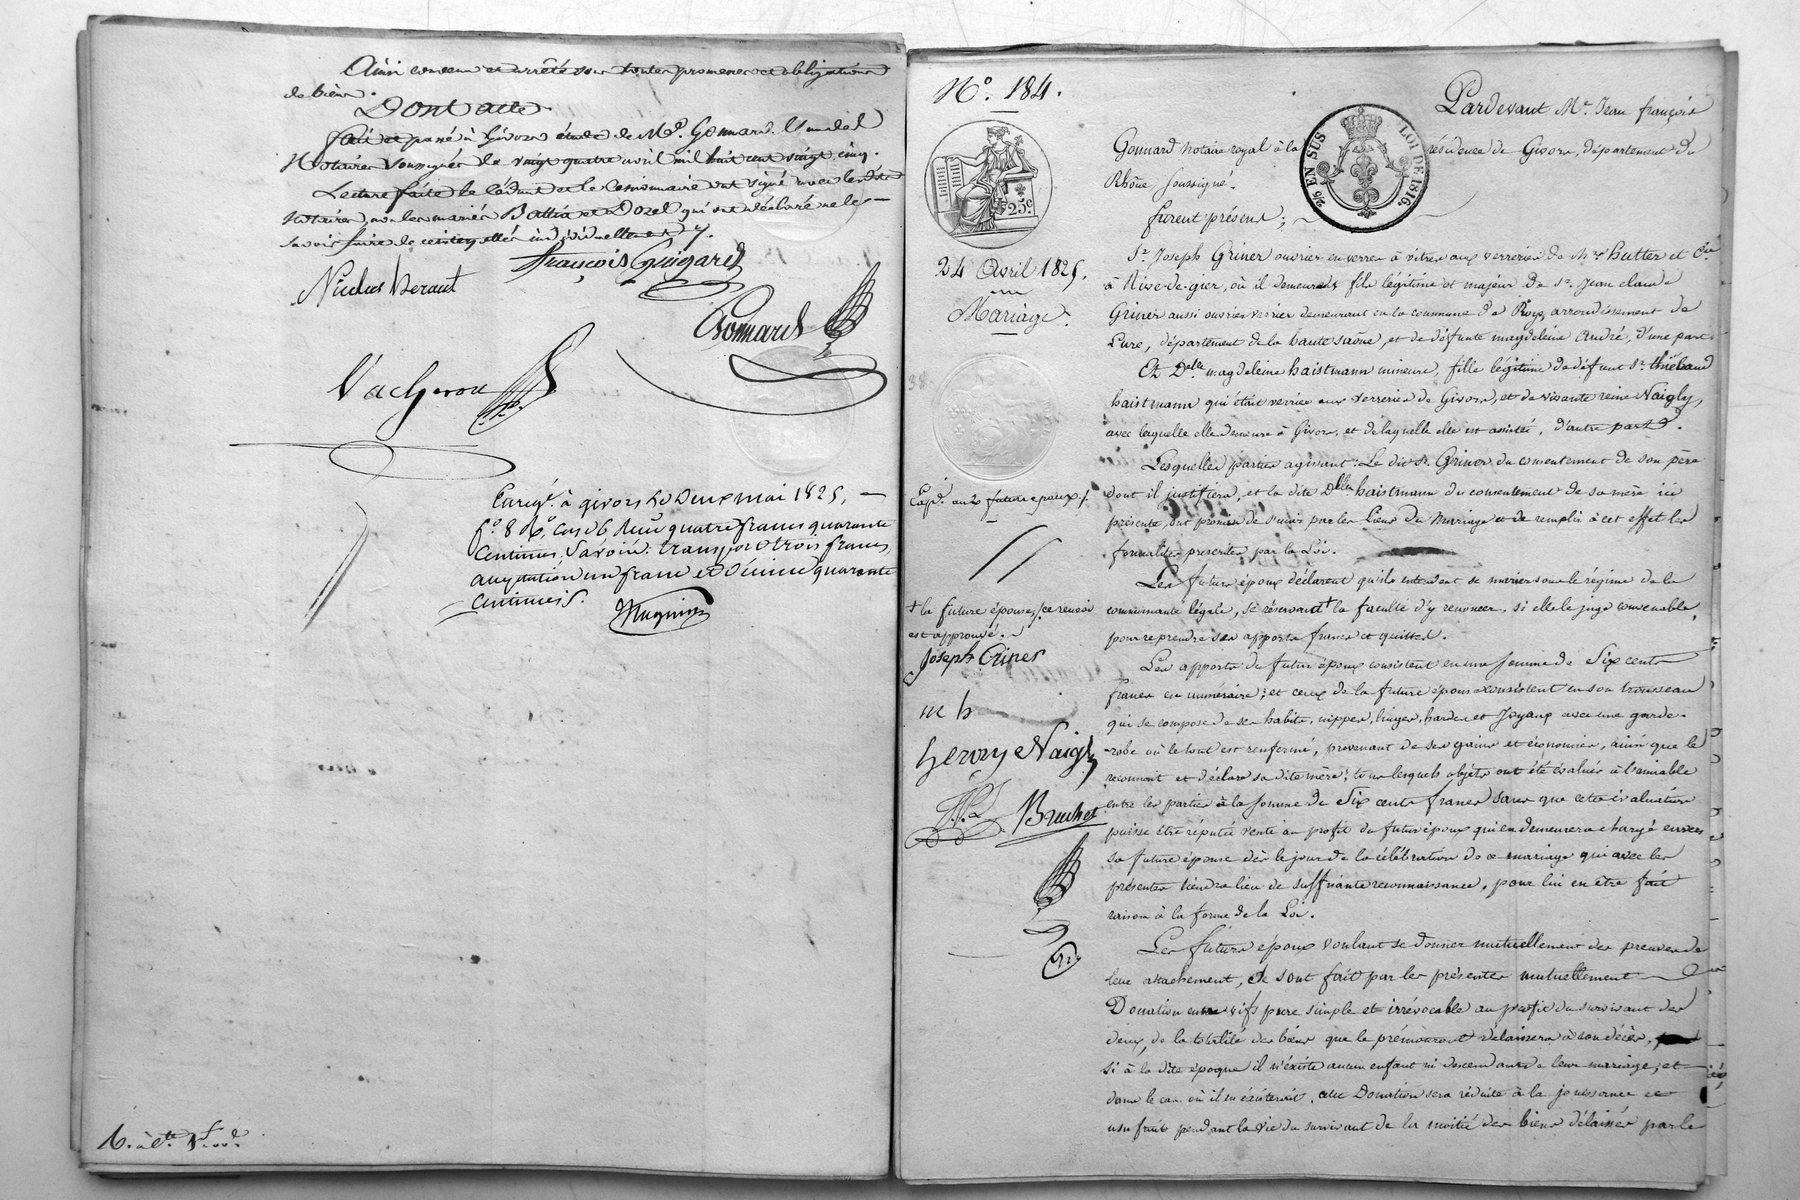 Ainsi convenu et arrêté sous toutes promesses et obligations
de biens.
Dont acte
fait et passé à Givors étude de Me. Gonnard l'un des
Notaires soussignés le vingt quatre avril mil huit cent vingt cinq.
Lecture faite le cédant et le cessionnaire ont signé avec les dits
notaires, non les mariés Battia et Dozel qui ont déclaré ne le
savoir faire de ce enquis individuellement
Nicolas heraut
françois Guigard
Gonnard
Vacheron
Enregé. à givors le Deux mai 1825,
fo. 86 Vo, case 6, Reçu quatre francs quarante
Centimes, Savoir: transport trois francs,
quittance un franc et Décime quarante
centimes.
No. 184.
25c
24 Avril 1825.
Mariage.
2/10 EN SUS
LOI DE 1816.
38
Expé. aux futurs époux
+ la future épouse, ce renvoi
est approuvé.
Joseph Griner
m h
hervy Naigly
Bruchet
Pardevant Me. Jean françois
Gonnard Notaire royal à la résidence de Givors, département du
Rhône soussigné.
furent présens;
Sr. Joseph Griner ouvrier en verres à vitres aux verreries de Mrs hutter et Cie
à Rive-de-gier, où il demeure, fils légitime et majeur de Sr. Jean claude
Griner aussi ouvrier verrier demeurant en la commune de Roye arrondissement de
Lure, département de la haute saône, et de défunte magdeleine André, d'une part
Et Delle magdeleine haistmann mineure, fille légitime de défunt Sr. thiébaud
haistmann qui était verrier aux verreries de Givors, et de vivante reine Naigly,
avec laquelle elle demeure à Givors, et de laquelle elle est assistée, d'autre part.
Lesquelles parties agissant: Le dit Sr. Griner du consentement de son père
dont il justifiera, et la dite Delle haistmann du consentement de sa mère ici
présente, ont promis de s'unir par les liens du Mariage et de remplir à cet effet les
formalités prescrites par la Loi.
Les futurs époux déclarent qu'ils entendent se marier sous le régime de la
communauté légale, se réservant + la faculté d'y renoncer, si elle le juge convenable,
pour reprendre ses apports francs et quittes.
Les apports du futur époux consistent en une somme de Six cents
francs en numéraire; et ceux de la future épouse consistent en son trousseau
qui se compose de ses habits, nippes, linges, hardes et Joyaux avec une garde-
-robe où le tout est renfermé, provenant de ses gains et économies, ainsi que le
reconnait et déclare sa dite mère; tous lesquels objets ont été évalués à l'amiable
entre les parties à la somme de Six cents francs, sans que cette évaluation
puisse être réputée vente au profit du futur époux qui en demeurera chargé envers
sa future épouse dès le jour de la célébration de ce mariage qui avec les
présentes tiendra lieu de suffisante reconnaissance, pour lui en être fait
raison à la forme de la Loi.
Les futurs époux voulant se donner mutuellement des preuves de
leur attachement, se sont fait par les présentes mutuellement
Donation entre vifs pure simple et irrévocable au profit du survivant des
deux, de la totalité des biens que le prémourant délaissera à son décès,
si à la dite époque il n'existe aucun enfant ni descendants de leur mariage; et
dans le cas où il en existerait, cette Donation sera réduite à la jouissance et
usufruit pendant la vie du survivant de la moitié des biens délaissés par le